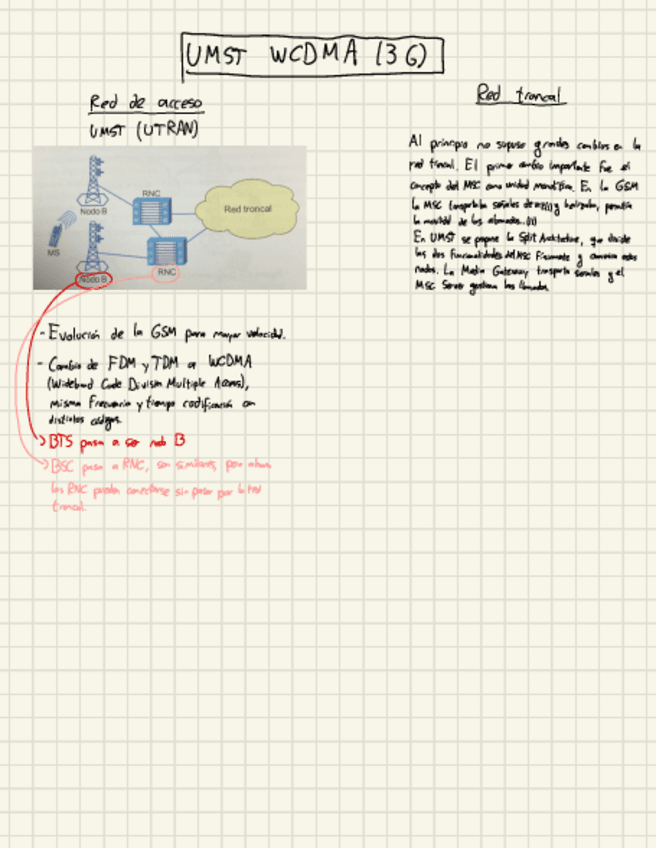 UMST WCDMA (3G)
Red de acceso
UMST (UTRAN)
Nodo B
RNC
Red troncal
MS
Nodo B
RNC
- Evolución de la GSM para mayor velocidad.
- Cambio de FDM y TDM a WCDMA
(Wideband Code Division Multiple Access),
misma frecuencia y tiempo codificación con
distintos códigos.
BTS pasa a ser nodo B
BSC pasa a RNC, son similares, pero ahora
los RNC pueden conectarse sin pasar por la red
troncal.
Red troncal
Al principio no supuso grandes cambios en la
red troncal. El primer cambio importante fue el
concepto del MSC como unidad monolítica. En la GSM
la MSC transportaba señales de y permitía
la movilidad de los abonados.
En UMST se propone la Split Architecture, que divide
las dos funcionalidades del MSC físicamente y en dos
nodos. La Media Gateway transporta señales y el
MSC Server gestiona las llamadas.